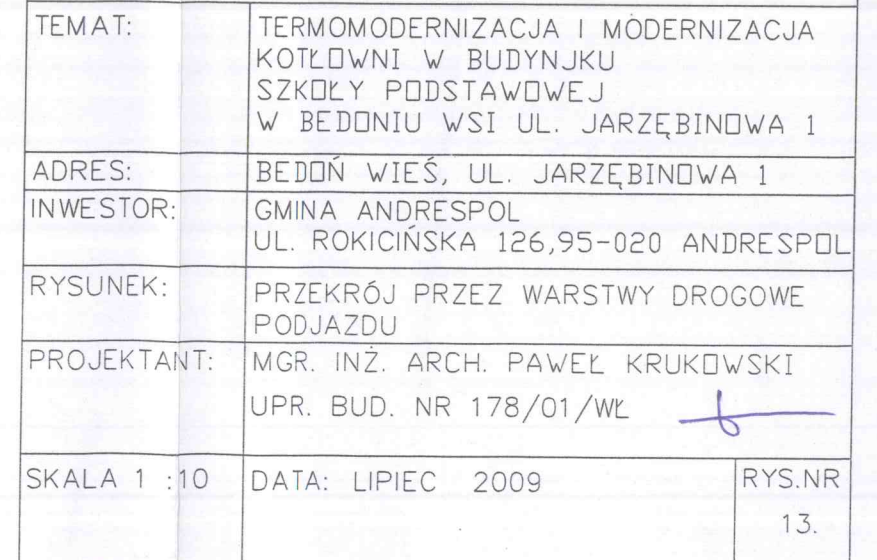 TEMAT: TERMOMODERNIZACJA I MODERNIZACJA
KOTŁOWNI W BUDYNJKU
SZKOŁY PODSTAWOWEJ
W BEDONIU WSI UL. JARZĘBINOWA 1
ADRES: BEDOŃ WIEŚ, UL. JARZĘBINOWA 1
INWESTOR: GMINA ANDRESPOL
UL. ROKICIŃSKA 126,95-020 ANDRESPOL
RYSUNEK: PRZEKRÓJ PRZEZ WARSTWY DROGOWE
PODJAZDU
PROJEKTANT: MGR. INŻ. ARCH. PAWEŁ KRUKOWSKI
UPR. BUD. NR 178/01/WŁ
SKALA 1 :10 DATA: LIPIEC 2009 RYS.NR
13.